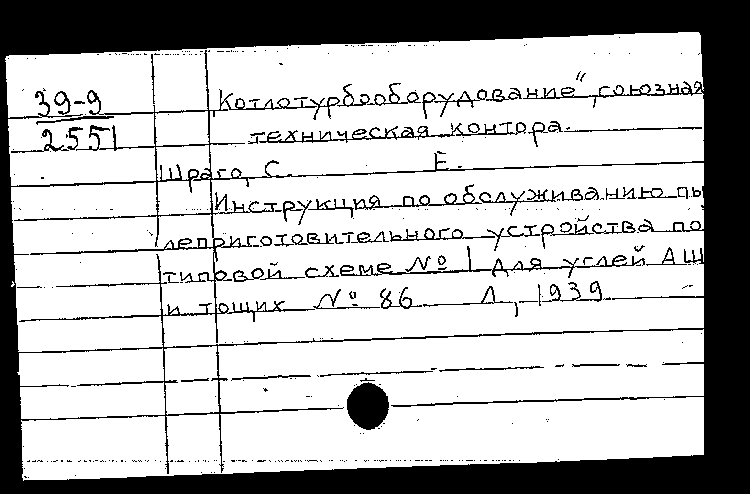 39-9
2551
„Котлотурбооборудование“, союзная
техническая контора.
Шраго, С. Е.
Инструкция по обслуживанию пы
леприготовительного устройства по
типовой схеме № 1 для углей АШ
и тощих № 86 Л, 1939